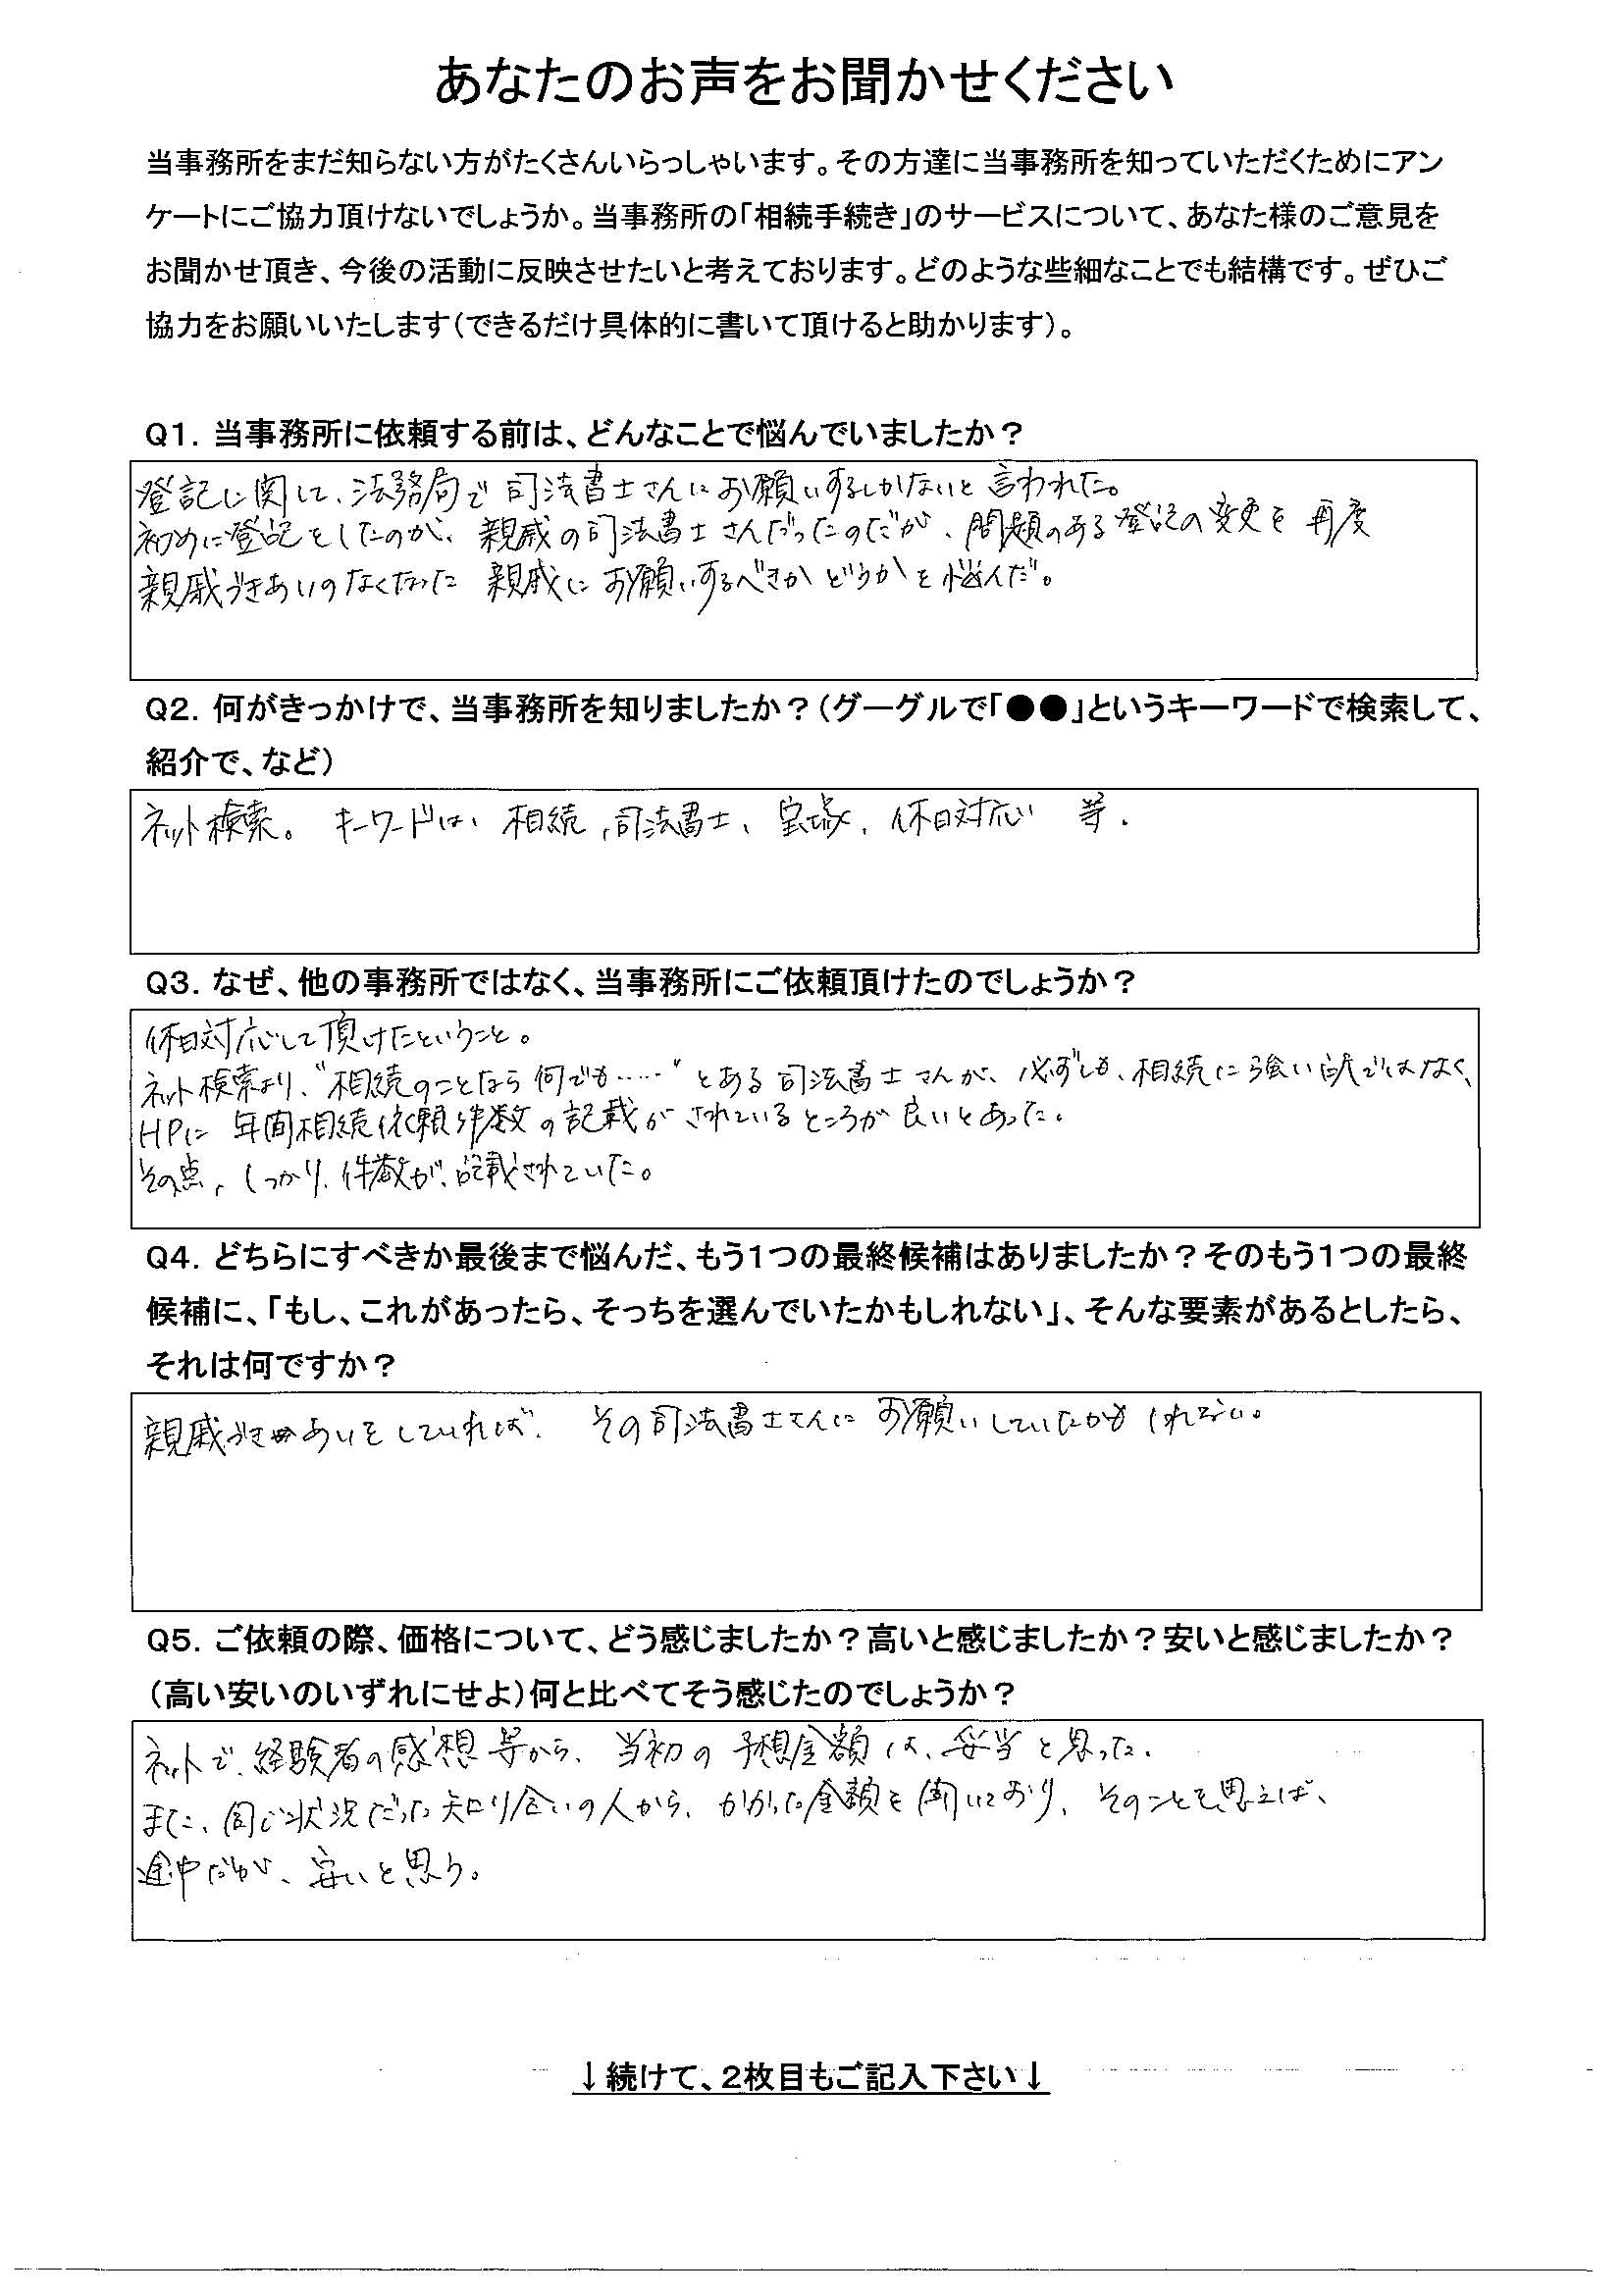 あなたのお声をお聞かせください
当事務所をまだ知らない方がたくさんいらっしゃいます。その方達に当事務所を知っていただくためにアン
ケートにご協力頂けないでしょうか。当事務所の「相続手続き」のサービスについて、あなた様のご意見を
お聞かせ頂き、今後の活動に反映させたいと考えております。どのような些細なことでも結構です。ぜひご
協力をお願いいたします（できるだけ具体的に書いて頂けると助かります）。
Q1. 当事務所に依頼する前は、どんなことで悩んでいましたか？
登記に関して、法務局で司法書士さんにお願いするしかないと言われた。
初めに登記をしたのが、親戚の司法書士さんだったのだが、問題のある登記の変更を再度
親戚づきあいのなくなった親戚にお願いするべきかどうかを悩んだ。
Q2. 何がきっかけで、当事務所を知りましたか？（グーグルで「●●」というキーワードで検索して、
紹介で、など）
ネット検索。 キーワードは、相続、司法書士、宝塚、休日対応 等.
Q3. なぜ、他の事務所ではなく、当事務所にご依頼頂けたのでしょうか？
休日対応して頂けたということ。
ネット検索より、“相続のことなら何でも……”とある司法書士さんが、必ずしも、相続に強い訳ではなく、
HPに 年間相続依頼件数の記載がされているところが良いとあった。
その点、しっかり、件数が、記載されていた。
Q4. どちらにすべきか最後まで悩んだ、もう1つの最終候補はありましたか？そのもう1つの最終
候補に、「もし、これがあったら、そっちを選んでいたかもしれない」、そんな要素があるとしたら、
それは何ですか？
親戚づきあいをしていれば、 その司法書士さんに お願いしていたかもしれない。
Q5. ご依頼の際、価格について、どう感じましたか？高いと感じましたか？安いと感じましたか？
（高い安いのいずれにせよ）何と比べてそう感じたのでしょうか？
ネットで、経験者の感想等から、当初の予想金額は、妥当と思った.
また、同じ状況だった知り合いの人から、かかった金額を聞いており、そのことを思えば、
途中だが、安いと思う。
↓続けて、2枚目もご記入下さい↓